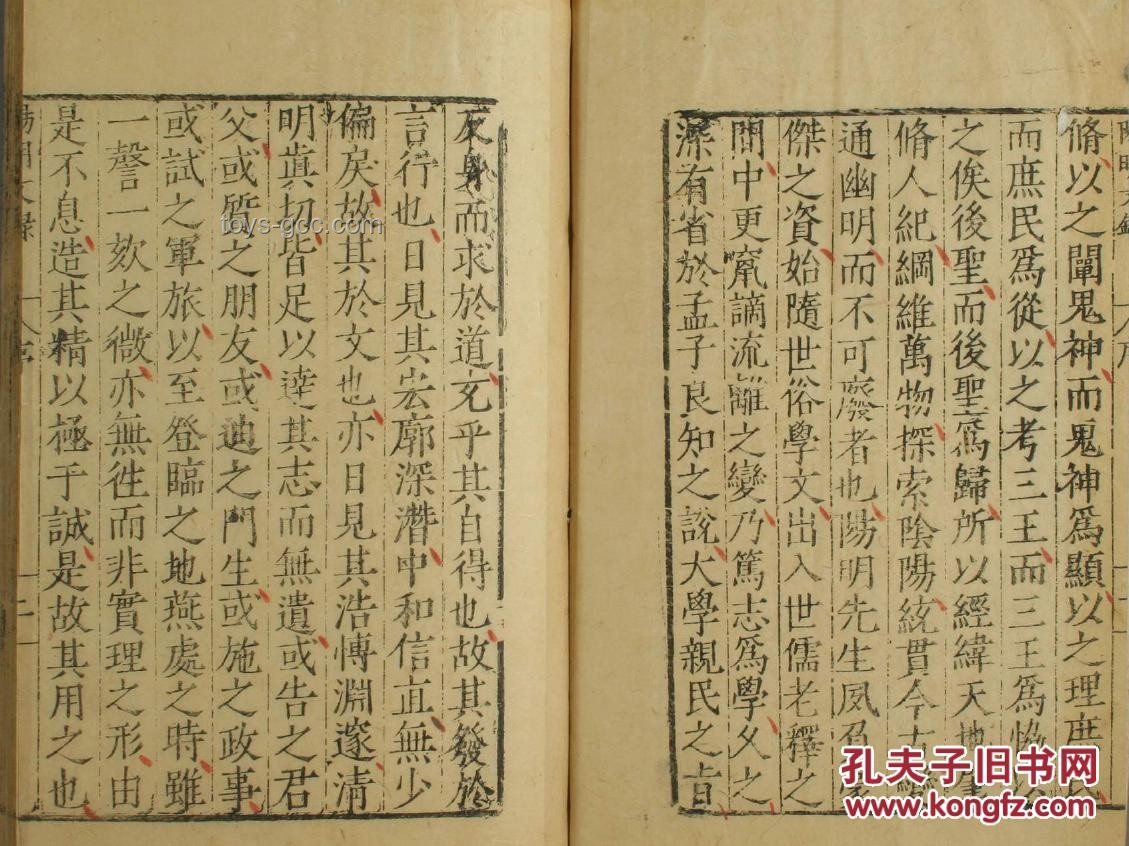 陽明文錄
脩以之闡鬼神而鬼神爲顯以之理庶
而庶民爲從以之考三王而三王爲
之俟後聖而後聖爲歸所以經緯天地
脩人紀綱維萬物探索陰陽統貫今古
通幽明而不可廢者也陽明先生夙負
傑之資始隨世俗學文出入世儒老釋之
間中更竄謫流離之變乃篤志爲學久之
深有省於孟子良知之說大學親民之旨
反身而求於道充乎其自得也故其發於
言行也日見其宏廓深潛中和信直無少
偏戾故其於文也亦日見其浩博淵邃清
明眞切皆足以達其志而無遺或告之君
父或質之朋友或迪之門生或施之政事
或試之軍旅以至登臨之地燕處之時雖
一謦一欬之微亦無徃而非實理之形由
是不息造其精以極于誠是故其用之也
陽明文錄 序 二
toys-gdc.com
孔夫子旧书网
www.kongfz.com